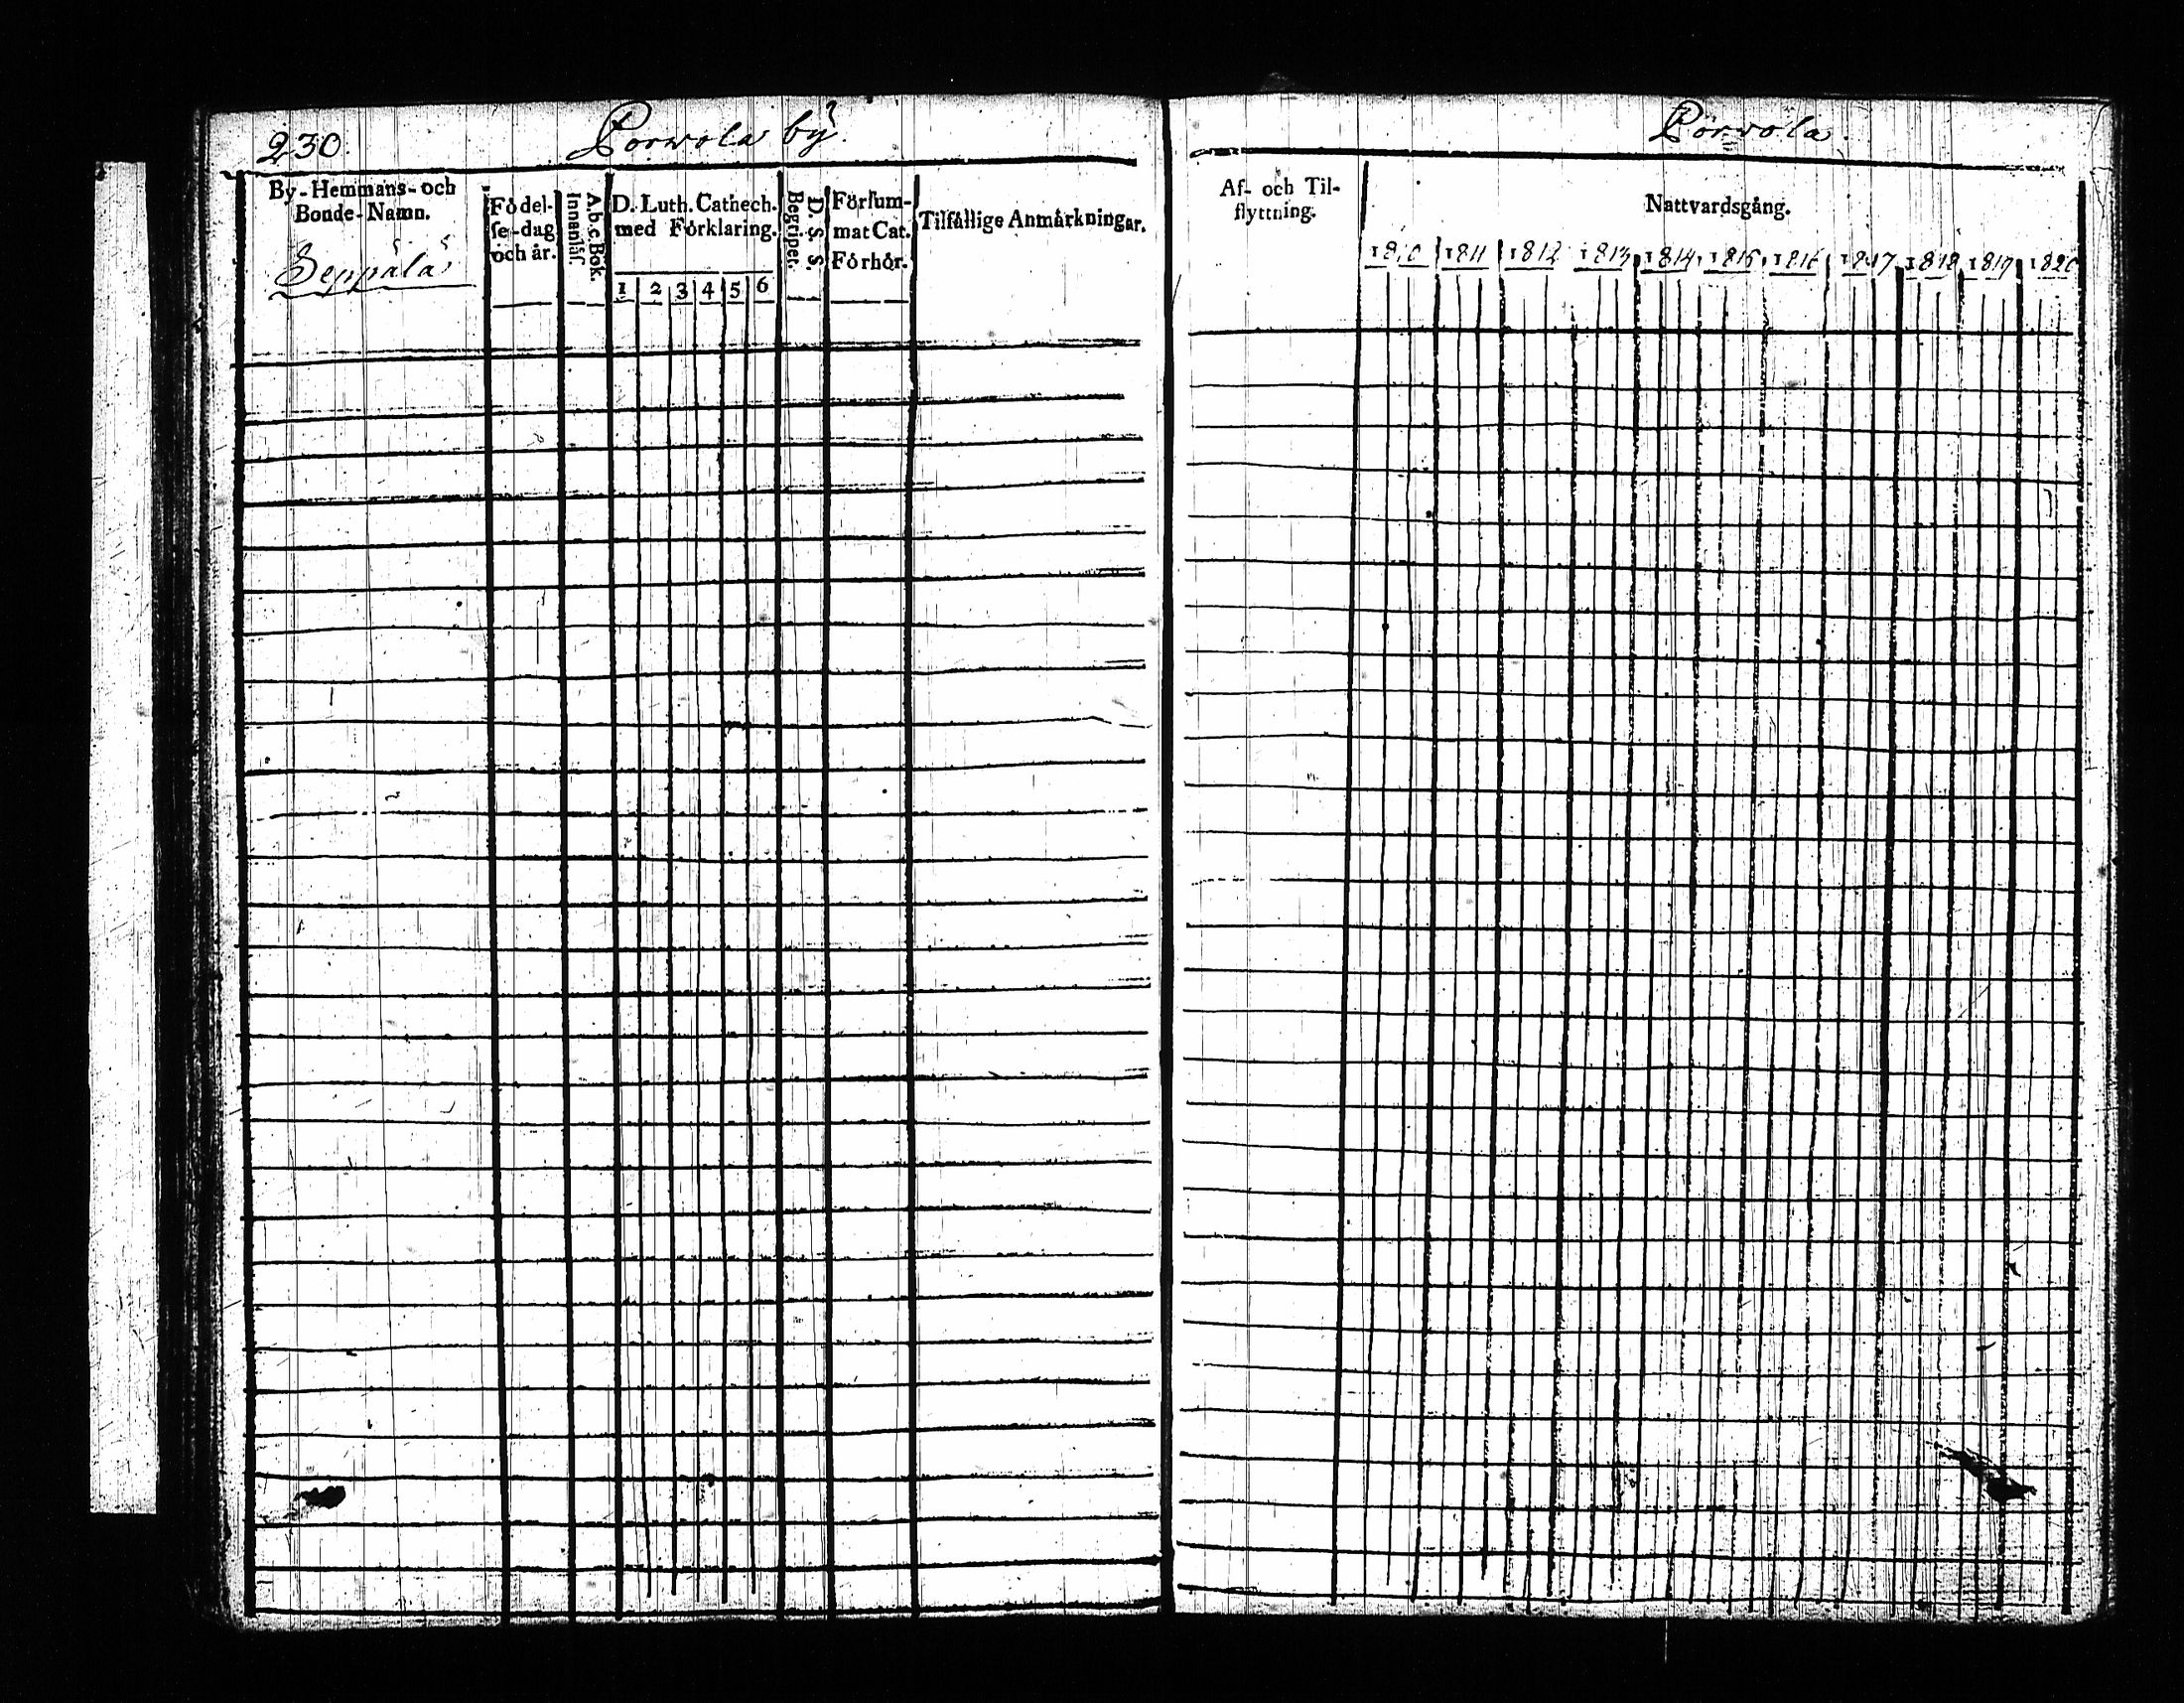 230.
Porwola by
By-Hemmans- och
Bonde-Namn.
Seppälä
Födel-
se-dag
och år.
A.b.c. Bok.
Innanläs.
D. Luth. Cathech.
med Förklaring.
1 2 3 4 5 6
D. S. S.
Begriper.
Försum-
mat Cat.
Förhör.
Tilfällige Anmärkningar.
Porwola
Af- och Til-
flyttning.
Nattvardsgång.
1810 1811 1812 1813 1814 1815 1816 1817 1818 1819 1820